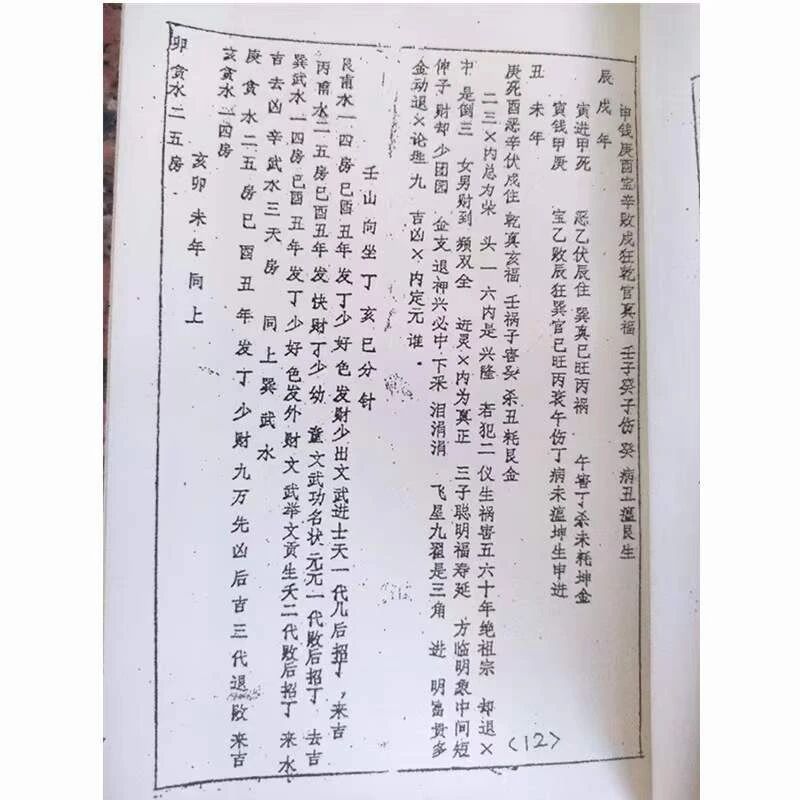 甲钱庚酉宝辛败戌狂乾官真福 壬子癸子伤 癸 病丑瘟艮生
辰戌年
寅进甲死 恶乙伏辰住 巽真巳旺丙祸 午害丁杀未耗坤金
寅钱甲庚 宝乙败辰狂巽官巳旺丙衰午伤丁病未瘟坤生申进
丑未年
庚死酉恶辛伏戌住 乾真亥福 壬祸子害癸杀丑耗艮金
二三×内总为柴 头一六内是兴隆 若犯二仪生祸害五六十年绝祖宗 却退×
中是倒三 女男财到 频双全 近灵×内为真正 三子聪明福寿延 方临明象中间短
伸子财却少团园 金支退神兴必中 下釆 泪涓涓 飞星九翟是三角 进 明富贵多
金动退×论 九 吉凶×内定元 谁。
壬山向坐丁亥巳分针
艮甫水一四房巳酉丑年发丁少好色发财少出文武进士天一代几后招丁，来吉
丙甫水二五房巳酉丑年发快财丁少幼 童文武功名状元元一代败后招丁 去吉
巽武水一四房巳酉丑年发丁少好色发外财文武举文贡生夭二代败后招丁 来水
吉去凶辛武水三天房 同上巽武水
庚贪水二五房巳酉丑年发丁少财九万先凶后吉三代退败来吉
亥贪水一四房
亥卯未年同上
卯贪水二五房
(12)